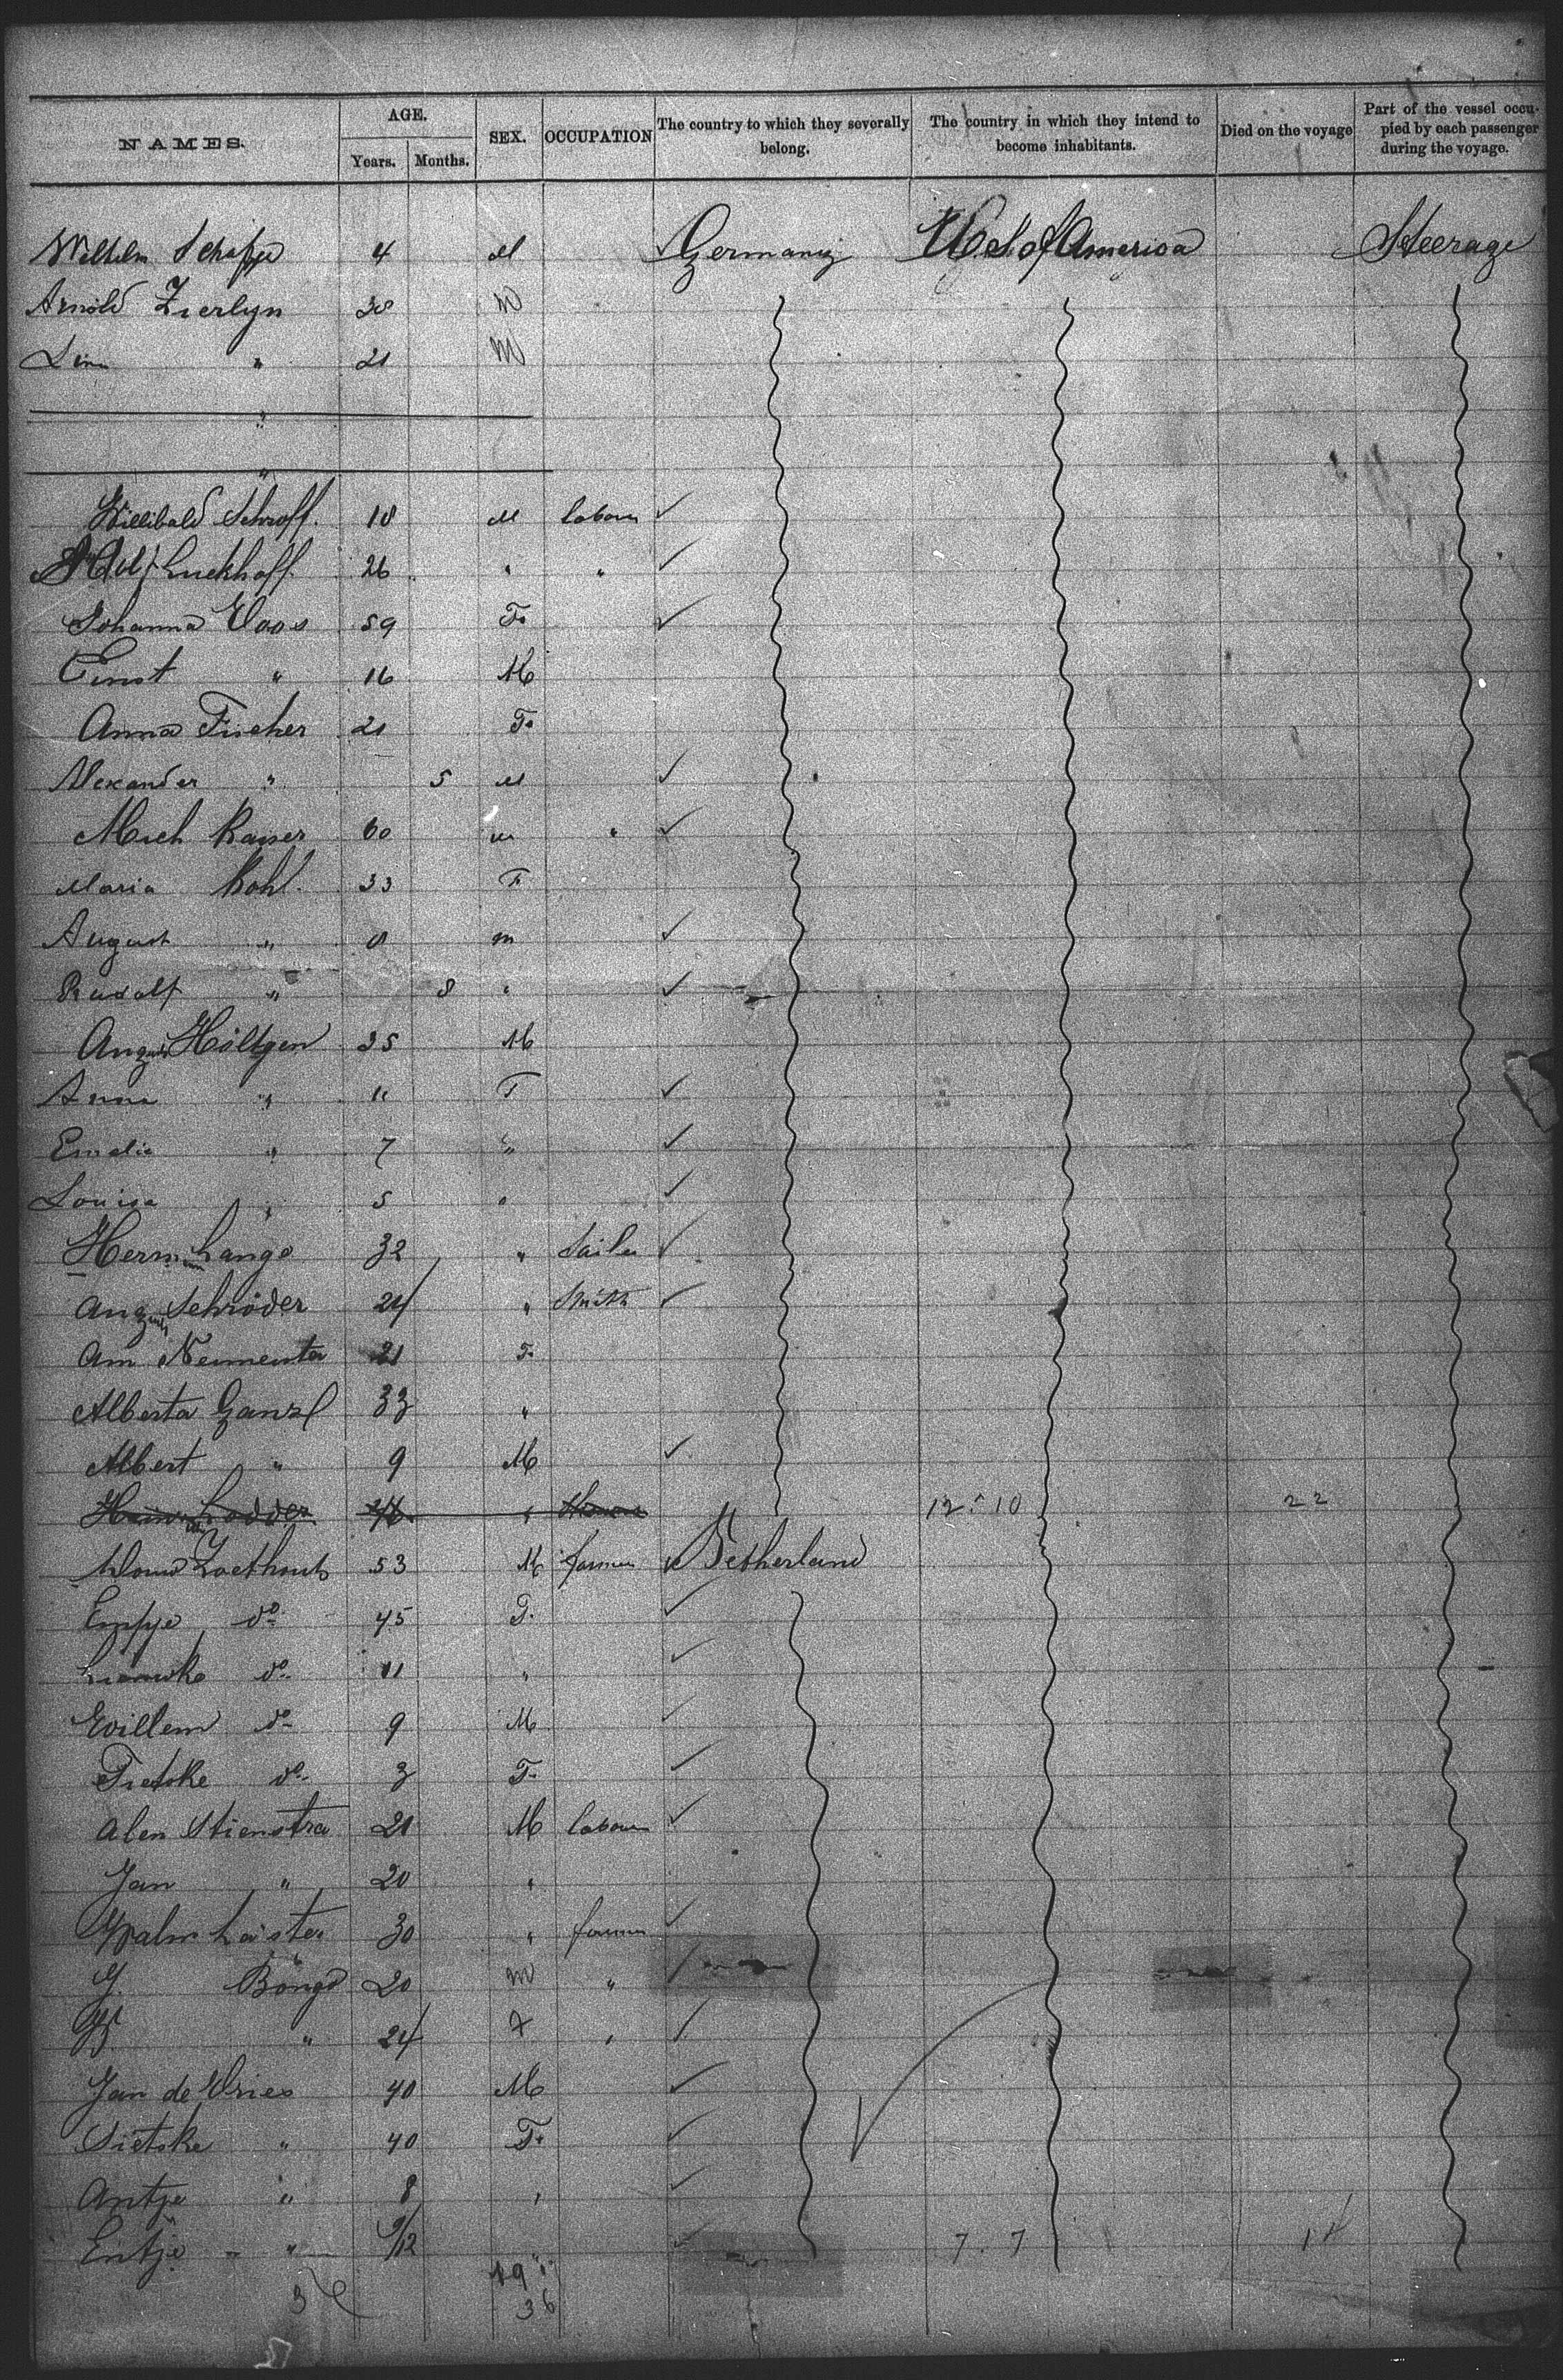 NAMES. AGE. Years. Months. SEX. OCCUPATION The country to which they severally belong. The country in which they intend to become inhabitants. Died on the voyage Part of the vessel occupied by each passenger during the voyage.
Wilhelm 4 M Germany U.S. of America Steerage
Arnold Zierlyn 30 M
21 M
"
"
Willibald Schroff. 18 M labour ✓
Luckhoff. 26 " " ✓
Johanna Voos 59 F. ✓
Ernst " 16 M
Anna Fischer 21 F.
Alexander " 5 M ✓
Mich Kaiser 60 m " ✓
Maria Kohl. 33 F
August " 8 m ✓
Rudolf " 8 " ✓
August Höltgen 35 M
Anna " 11 F ✓
Emelie " 7 " ✓
Louisa " 5 " ✓
Herm. Lange 32 " ✓
August Schröder 24 " Smith ✓
21 F.
Alberta Ganzl 33 "
Albert " 9 M ✓
Lodder " 12 . 10 22
Zoethout 53 M farmer Netherland
do 45 F. ✓
do 11 " ✓
Willem do 9 M
Tietske do 3 F. ✓
Alen Stienstra 21 M labour ✓
Jan " 20 "
30 " farmer ✓
Y. Bonga 20 M "
" 24 F "
Jan de Vries 40 M ✓
Sietske " 40 F. ✓
Antje " 8 " ✓
Entje " 9/12 7 . 7
19
36